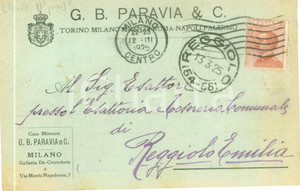 G. B. PARAVIA & C.
TORINO MILANO ROMA NAPOLI PALERMO
MILANO
12 III
1925
CENTRO
REGGIOLO
13.3.25
(54-56)
Al Sig Esattore
presso l'Esattoria Tesoreria Comunale
di
Reggiolo Emilia
Casa Mittente
G. B. PARAVIA e C.
MILANO
Galleria De-Cristoforis
e Via Monte Napoleone,